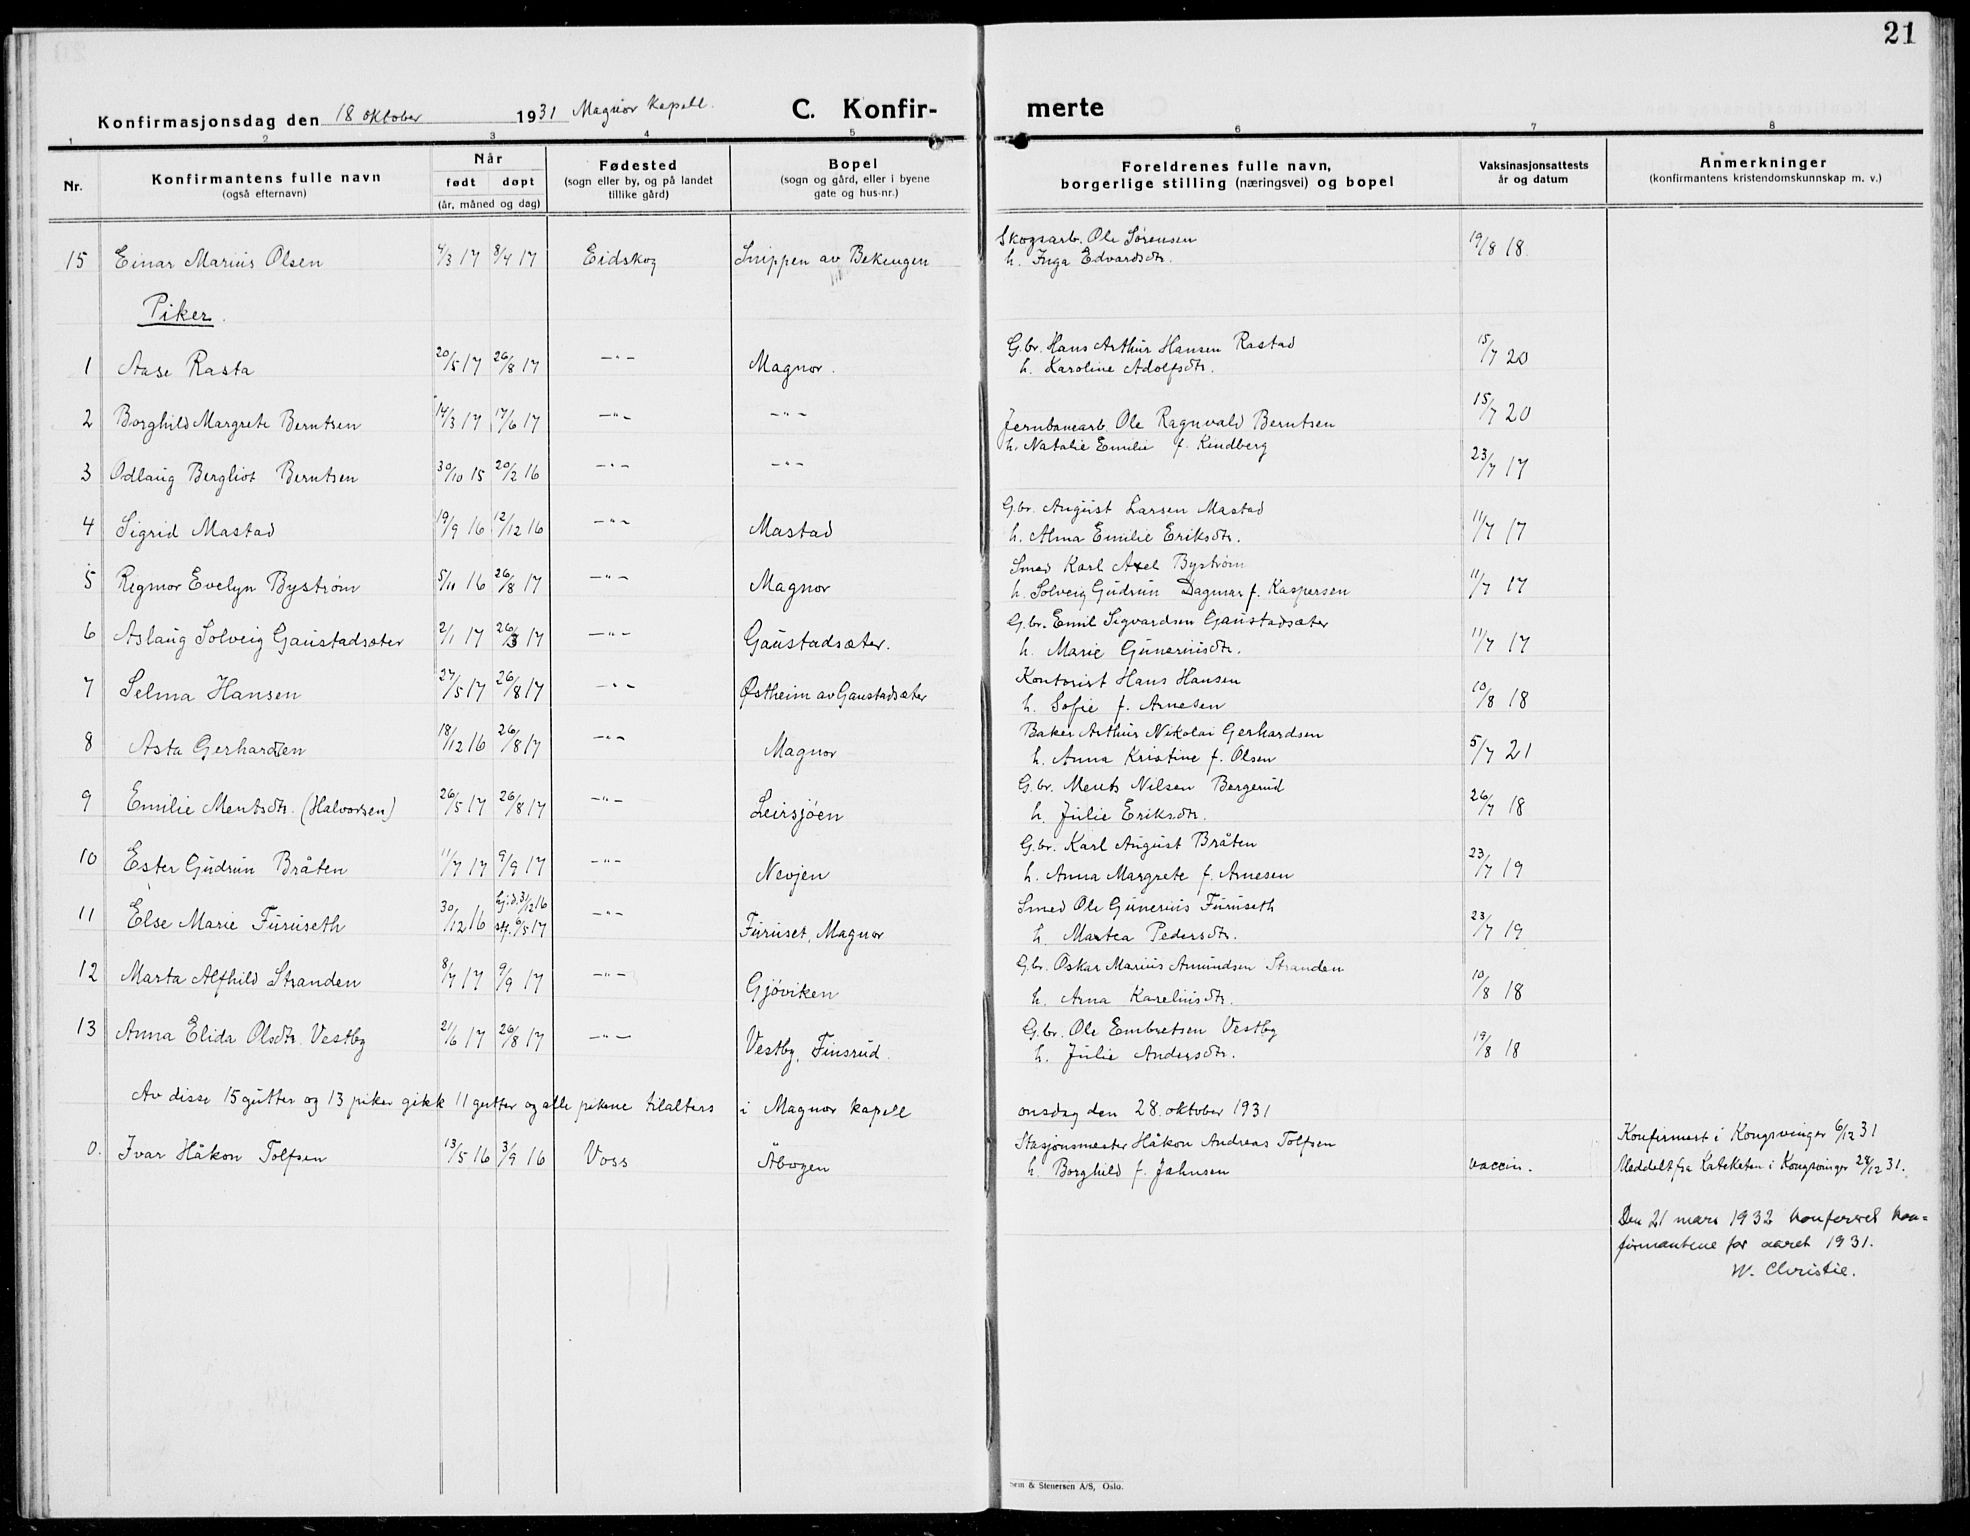 21
Konfirmasjonsdag den 18 oktober 1931 Magnor Kapell.
C. Konfir-
merte
1 2 3 4 5 6 7 8
Nr.
Konfirmantens fulle navn
(også efternavn)
Når
født døpt
(år, måned og dag)
Fødested
(sogn eller by, og på landet
tillike gård)
Bopel
(sogn og gård, eller i byene
gate og hus-nr.)
Foreldrenes fulle navn,
borgerlige stilling (næringsvei) og bopel
Vaksinasjonsattests
år og datum
Anmerkninger
(konfirmantens kristendomskunnskap m. v.)
15 Einar Marius Olsen 4/3 17 8/4 17 Eidskog Snippen av Bekengen
Skogsarb. Ole Sørensen
h. Inga Edvardsdtr. 19/8 18
Piker.
1 Aase Rasta 20/5 17 26/8 17 —"— Magnor.
G.br. Hans Arthur Hansen Rastad
h. Karoline Adolfsdtr. 15/7 20
2 Borghild Margrete Berntsen 14/3 17 17/6 17 —"— —"—
Jernbanearb. Ole Ragnvald Berntsen 15/7 20
h. Natalie Emilie f. Kindberg
3 Odlaug Bergliot Berntsen 30/10 15 20/2 16 —"— —"— 23/7 17
4 Sigrid Mastad 19/9 16 12/12 16 —"— Mastad
G.br. August Larsen Mastad
h. Alma Emilie Eriksdtr. 11/7 17
5 Rigmor Evelyn Bystrøm 5/11 16 26/8 17 —"— Magnor
Smed Karl Axel Bystrøm
h. Solveig Gudrun Dagmar f. Kaspersen 11/7 17
6 Aslaug Solveig Gaustadsæter 2/1 17 26/3 17 —"— Gaustadsæter.
G.br. Emil Sigvardsen Gaustadsæter
h. Marie Guneriusdtr. 11/7 17
7 Selma Hansen 27/5 17 26/8 17 —"— Østheim av Gaustadsæter
Kontorist Hans Hansen
h. Sofie f. Arnesen 10/8 18
8 Asta Gerhardsen 18/12 16 26/8 17 —"— Magnor
Baker Arthur Nikolai Gerhardsen
h. Anna Kristine f. Olsen 5/7 21
9 Emilie Mentsdtr. (Halvorsen) 26/5 17 26/8 17 —"— Leirsjøen
G.br. Ments Nilsen Bergerud
h. Julie Eriksdtr. 26/7 18
10 Ester Gudrun Bråten 11/7 17 9/9 17 —"— Nevjen
G.br. Karl August Bråten
h. Anna Margrete f. Arnesen 23/7 19
11 Else Marie Furuseth 30/12 16 hj.d. 31/12 16 —"— Furuset, Magnor
stf. 6/5 17
Smed Ole Gunerius Furuseth
h. Martea Pedersdtr. 23/7 19
12 Marta Alfhild Stranden 8/7 17 9/9 17 —"— Gjøviken
G.br. Oskar Marius Amundsen Stranden
h. Arna Kareliusdtr. 10/8 18
13 Anna Elida Olsdtr. Vestby 21/6 17 26/8 17 —"— Vestby, Finsrud.
G.br. Ole Embretsen Vestby
h. Julie Andersdtr. 19/8 18
Av disse 15 gutter og 13 piker gikk 11 gutter og alle pikene tilalters i Magnor kapell onsdag den 28. oktober 1931
0. Ivar Håkon Tolfsen 13/5 16 3/9 16 Voss Åbogen
Stasjonsmester Håkon Andreas Tolfsen
h. Borghild f. Jahnsen vaccin.
Konfirmert i Kongsvinger 6/12 31
Meddelt fra Kateketen i Kongsvinger 28/12 31.
Den 21 mars 1932 konferert kon=
firmantene for aaret 1931.
W. Christie.
& Stenersen A/S, Oslo.